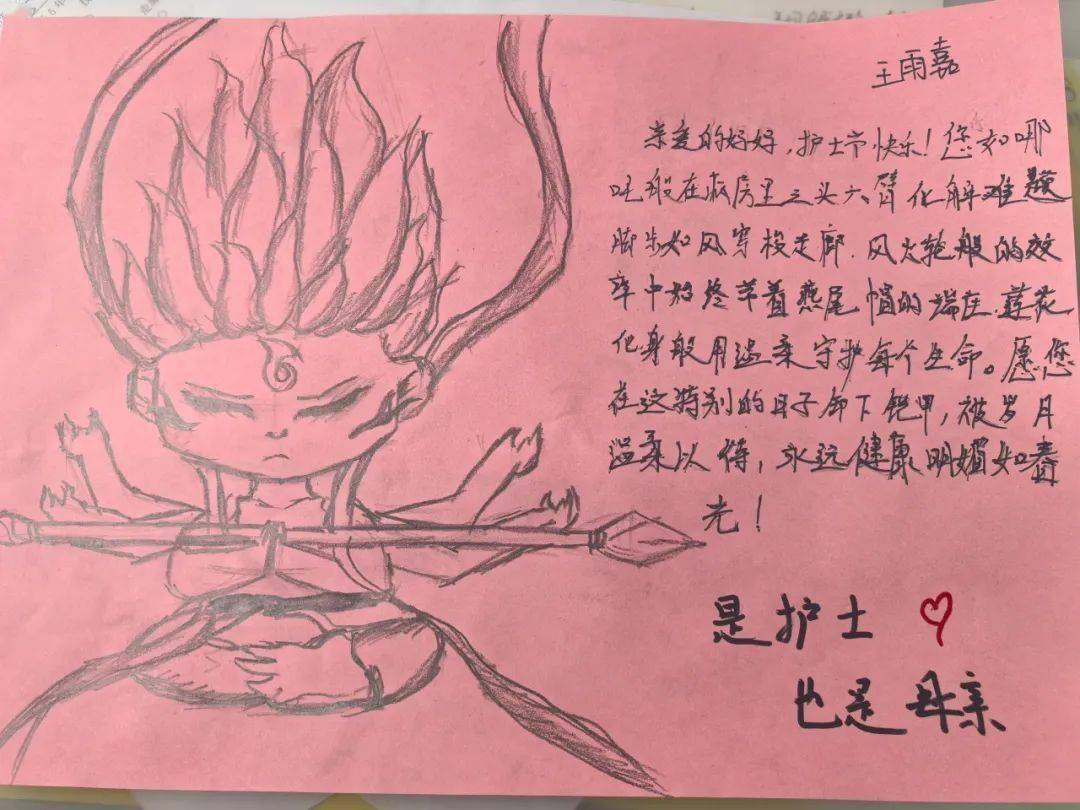 王雨嘉
亲爱的妈妈,护士节快乐!您如哪
吒般在病房里三头六臂化解难题
脚步如风穿梭走廊.风火轮般的效
率中始终苹着燕尾帽的端庄.莲花
化身般用温柔守护每个生命。愿您
在这特别的日子卸下铠甲,被岁月
温柔以待,永远健康明媚如春
光!
是护士
也是母亲